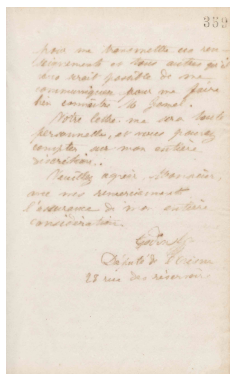 359
pour me transmettre ces ren-
seignements et tous autres qu'il
vous serait possible de me
communiquer pour me faire
bien connaître le
Votre lettre me sera toute
personnelle, et vous pouvez
compter sur mon entière
discrétion.
Veuillez agréer, Monsieur,
avec nos remerciements
l'assurance de mon entière
considération.
Godin
Député de l'Aisne
28 rue des réservoirs